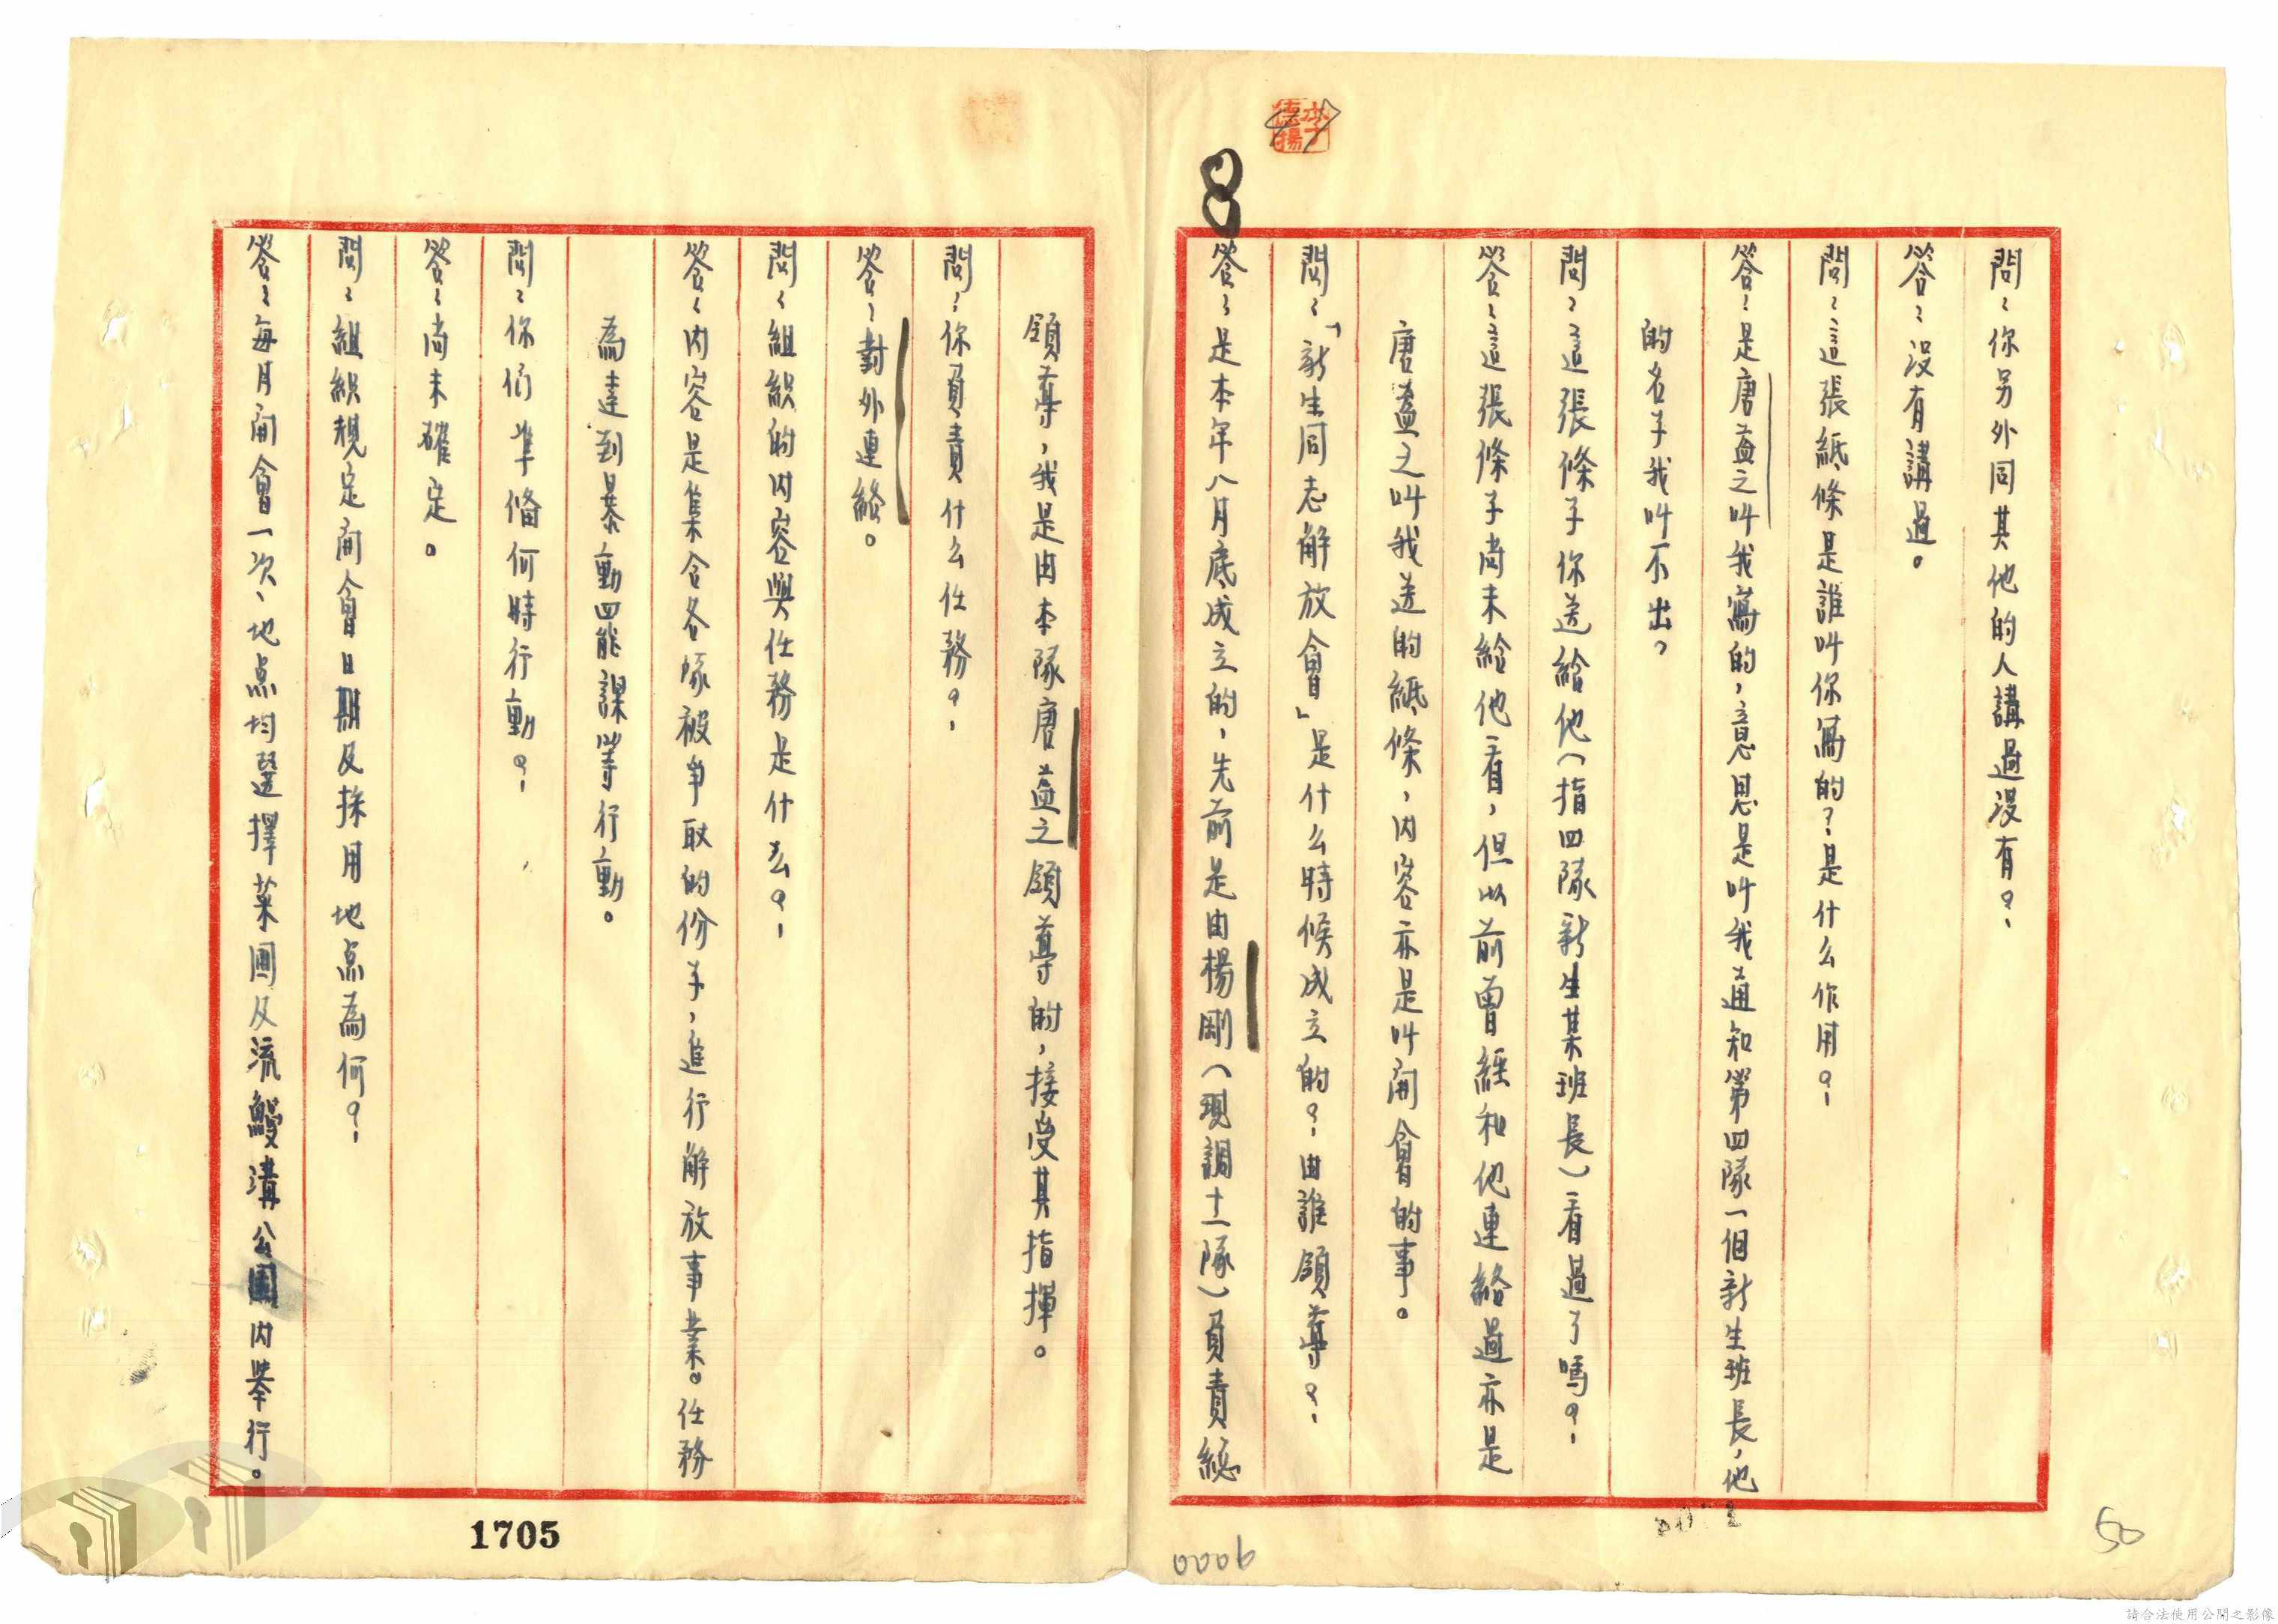 李德楊
8
問：你另外同其他的人講過沒有？
答：沒有講過。
問：這張紙條是誰叫你寫的？是什么作用？
答：是唐盍之叫我寫的，意思是叫我通知第四隊一個新生班長，他
的名字我叫不出。
問：這張條子你送給他（指四隊新生某班長）看過了嗎？
答：這張條子尚未給他看，但以前曾經和他連絡過亦是
唐盍之叫我送的紙條，內容亦是叫開會的事。
問：「新生同志解放會」是什么時候成立的？由誰領導？
答：是本年八月底成立的，先前是由楊剛（現調十一隊）負責總
領導，我是由本隊唐盍之領導的，接受其指揮。
問：你負責什么任務？
答：對外連絡。
問：組織的內容與任務是什么？
答：內容是集合各隊被爭取的份子，進行解放事業。任務
為達到暴動四能謀等行動。
問：你们準備何時行動？
答：尚未確定。
問：組織規定開會日期及採用地点為何？
答：每月開會一次，地点均選擇菜圃及流鰻溝公園內舉行。
1705
0006
50
請合法使用公開之影像